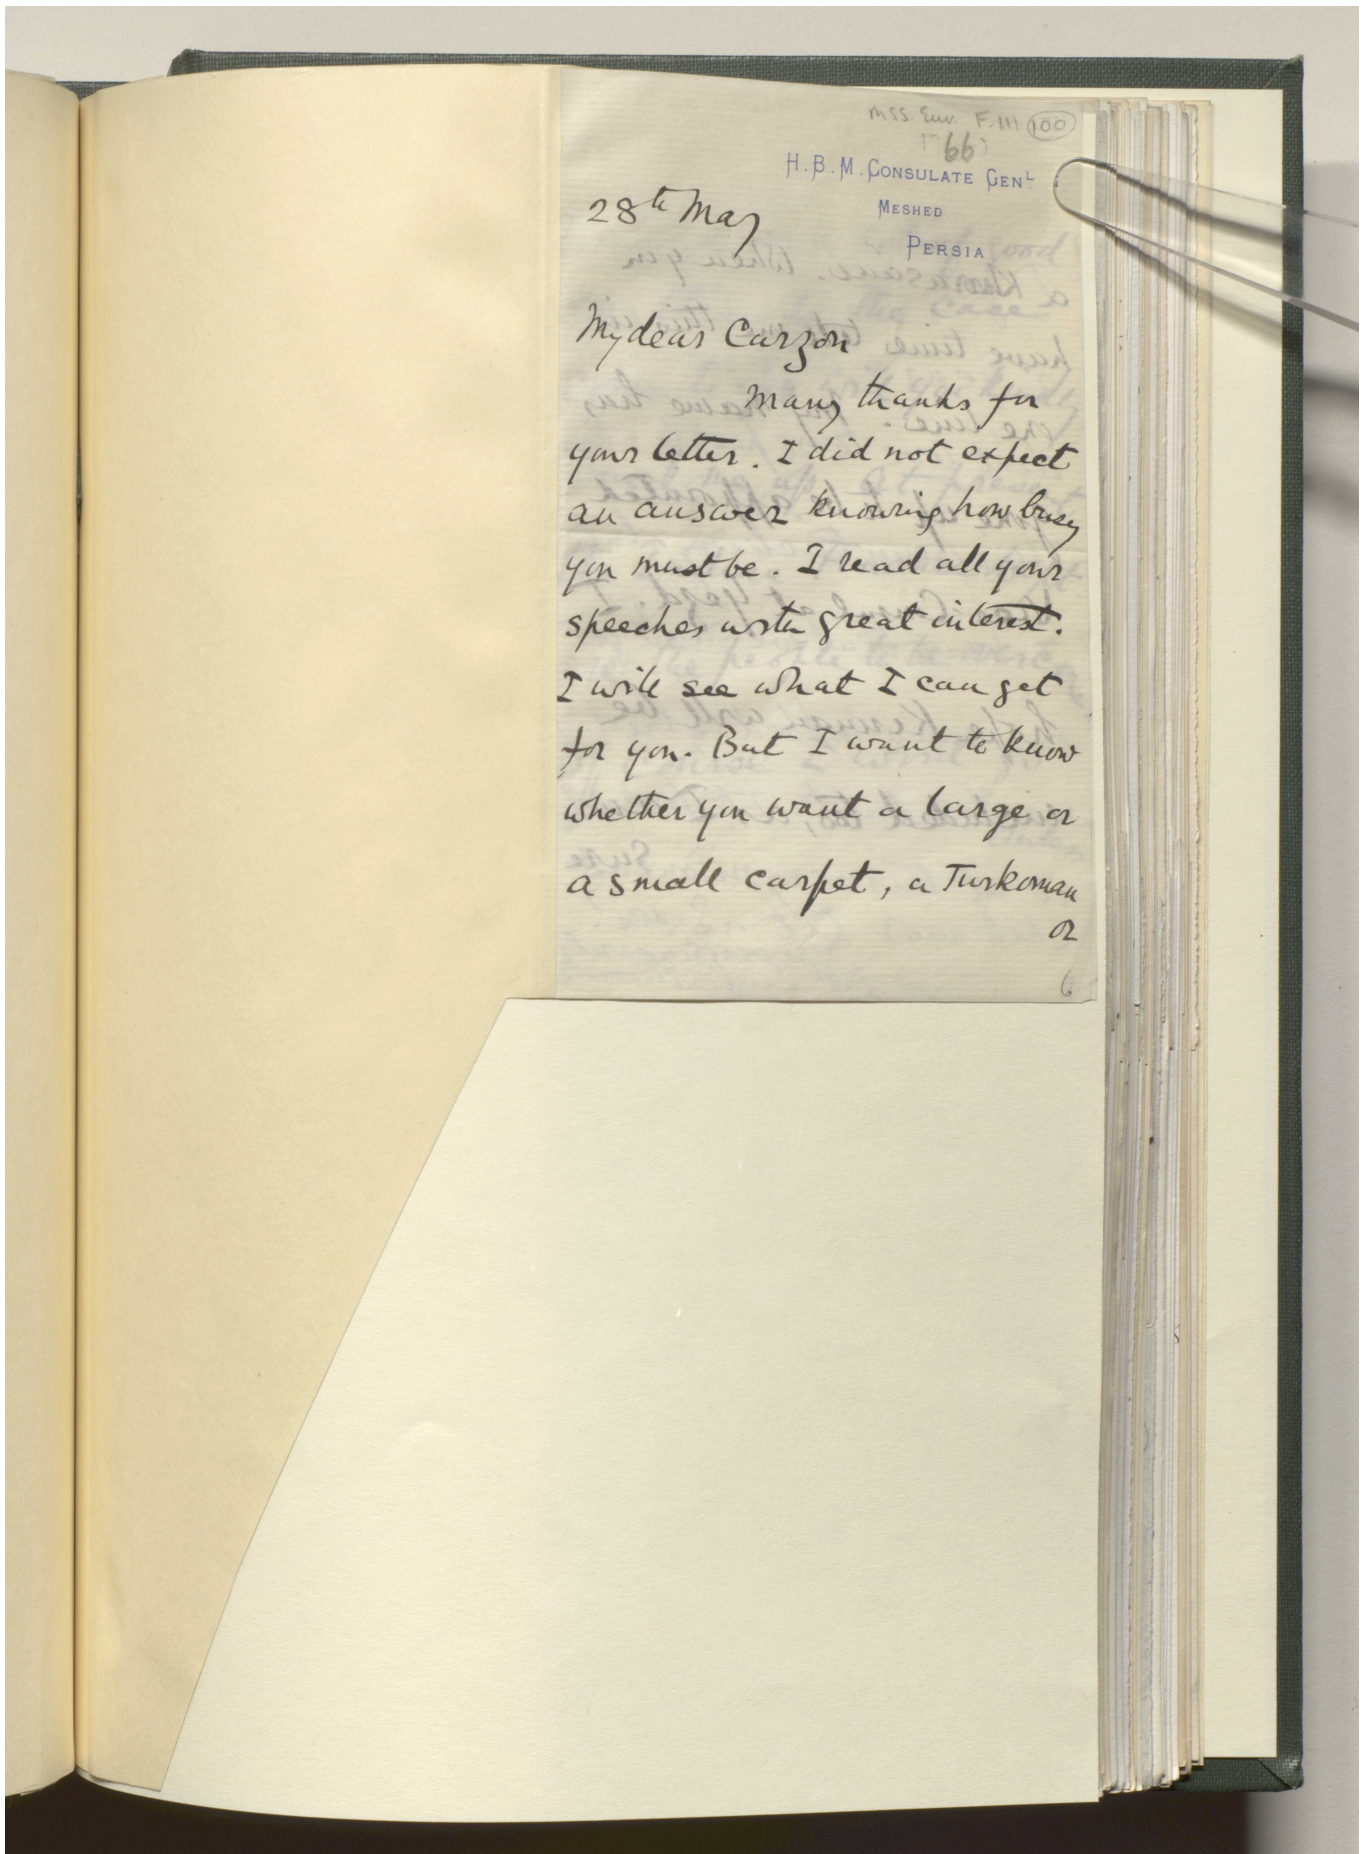 Mss. Eur. F.111 100
66
H.B.M. CONSULATE GENL.
MESHED
PERSIA
28th May
My dear Curzon
Many thanks for
your letter. I did not expect
an answer knowing how busy
you must be. I read all your
speeches with great interest.
I will see what I can get
for you. But I want to know
whether you want a large or
a small carpet, a Turkoman
or
6